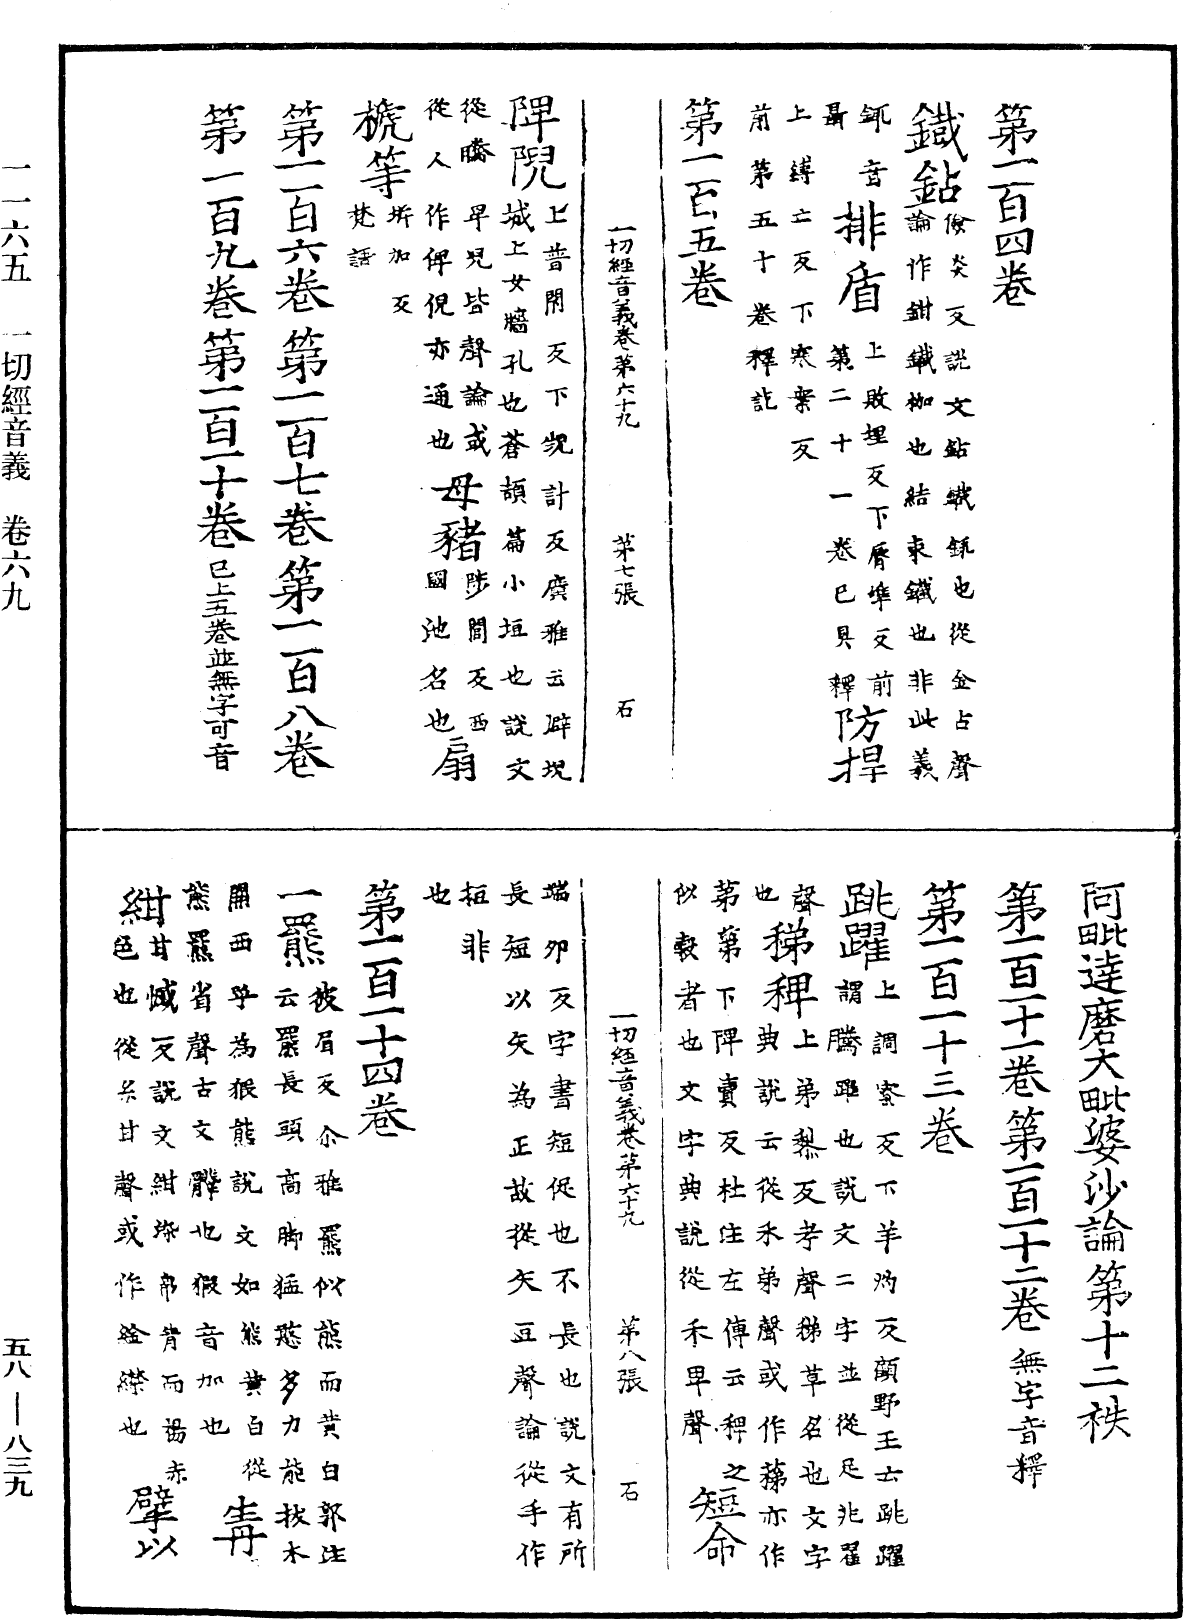 第一百四卷
鐵鉆儉炎反說文鉆鐵銸也從金占聲
論作鉗鐵枷也結束鐵也非此義
銸音聶
排盾上敗埋反下脣準反前
第二十一卷已具釋
防捍上縛亡反下寒案反
前第五十卷釋訖
第一百五卷
一切經音義卷第六十九 第七張 石
陴堄上普閇反下堄計反廣雅云陴堄
城上女牆孔也蒼頡篇小垣也說文
從𨸏卑兒皆聲論或
從人作俾倪亦通也
母豬陟閭反西
國池名也
扇
搋等坼加反
梵語
第一百六卷第一百七卷第一百八卷
第一百九卷第一百一十卷已上五卷並無字可音
阿毗達磨大毗婆沙論第十二袟
第一百一十一卷第一百一十二卷無字音釋
第一百一十三卷
跳躍上調寮反下羊灼反顧野王云跳躍
謂騰踊也說文二字並從足兆翟
聲也
稊稗上弟黎反考聲稊草名也文字
典說云從禾弟聲或作蕛亦作
第第下陴賣反杜注左傳云稗之
似穀者也文字典說從禾卑聲
短命
一切經音義卷第六十九 第八張 石
端卵反字書短促也不長也說文有所
長短以矢為正故從矢豆聲論從手作
挋非
也
第一百一十四卷
一羆彼眉反尒雅羆似熊而黃白郭注
云羆長頭高脚猛憨多力能拔木
關西呼為猳熊說文如熊黃白從
熊罷省聲古文𩯕也猳音加也
青
紺甘憾反說文紺染帛青而揚赤
色也從糸甘聲或作絵襟也
擘以
一一六五 一切經音義 卷六九
五八—八三九